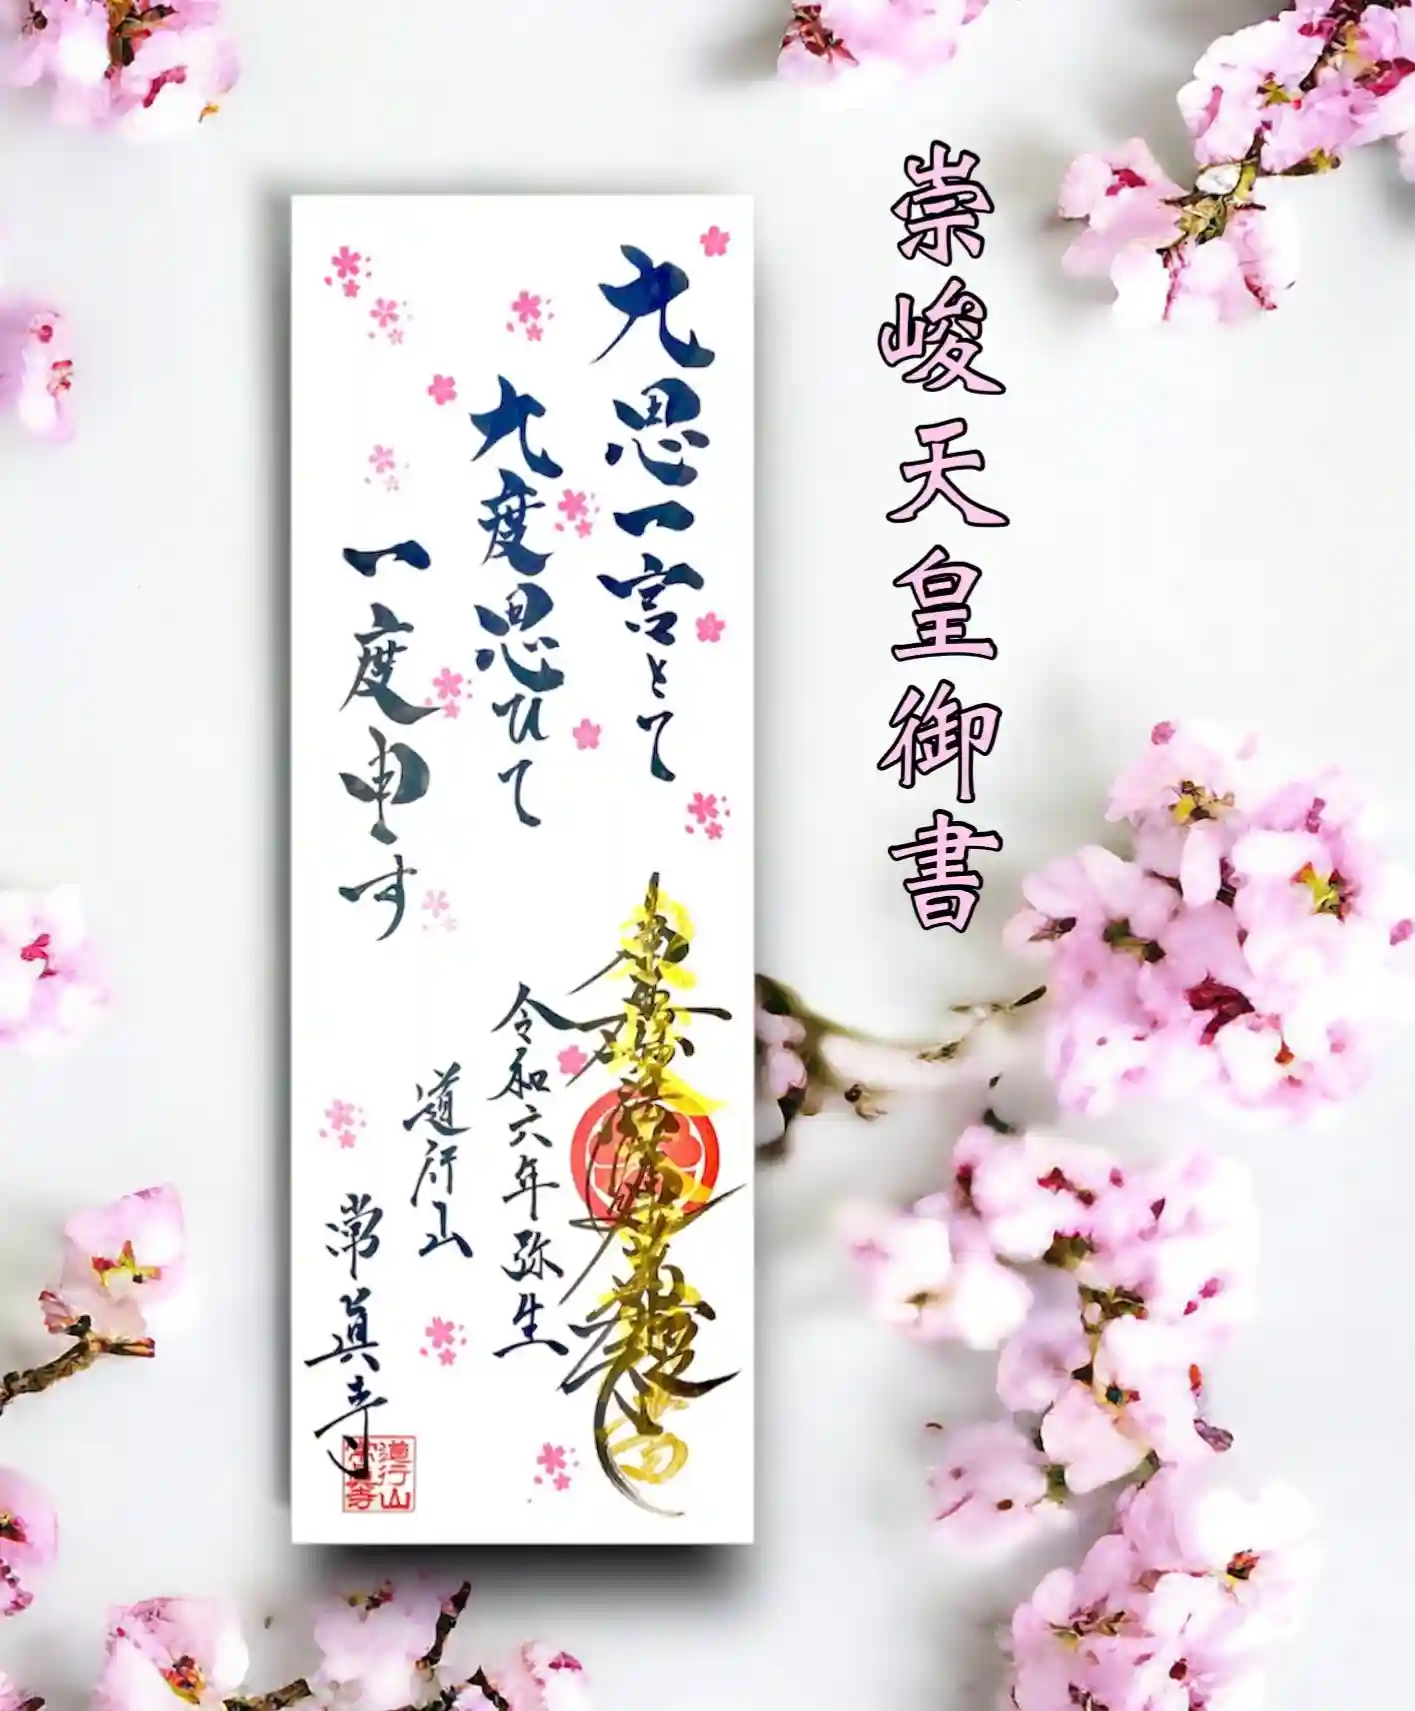 崇峻天皇御書
九思一言とて
九度思ひて
一度申す
南無妙法蓮華経
令和六年弥生
道行山
常眞寺
道行山
常眞寺